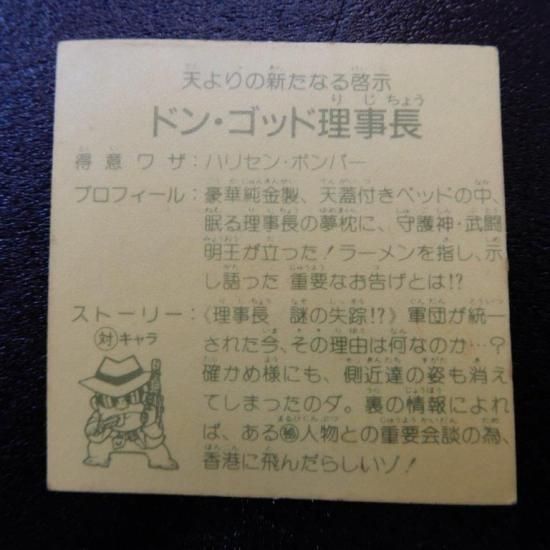 天よりの新たなる啓示
ドン・ゴッド理事長
得意ワザ:ハリセン・ボンバー
プロフィール:豪華純金製、天蓋付きベッドの中、
眠る理事長の夢枕に、守護神・武闘
明王が立った!ラーメンを指し、示
し語った 重要なお告げとは!?
ストーリー:《理事長 謎の失踪!?》軍団が統一
対キャラ
された今、その理由は何なのか…?
確かめ様にも、側近達の姿も消え
てしまったのダ。裏の情報によれ
ば、ある㊙人物との重要会談の為、
香港に飛んだらしいゾ!